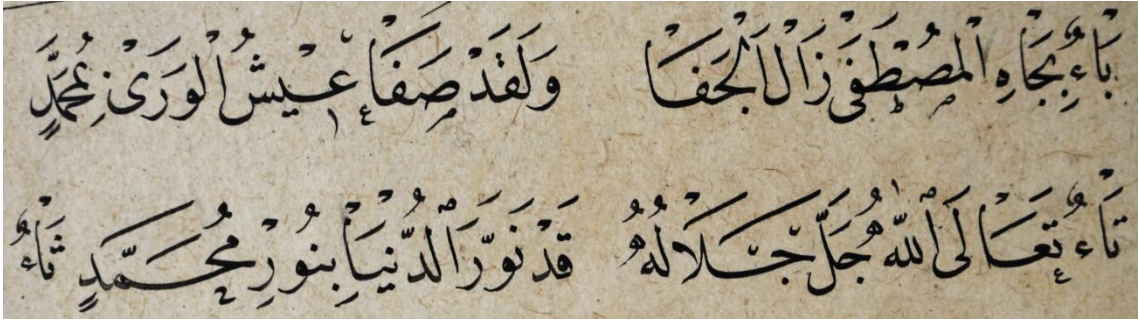 بَاءٌ بِجَاهِ الْمُصْطَفَى زَالَ الْجَفَا وَلَقَدْ صَفَا عَيْشُ الْوَرَى بِمُحَمَّدٍ
تَاءٌ تَعَالَى اللهُ جَلَّ جَلَالُهُ قَدْ نَوَّرَ الدُّنْيَا بِنُورِ مُحَمَّدٍ ثَاءٌ